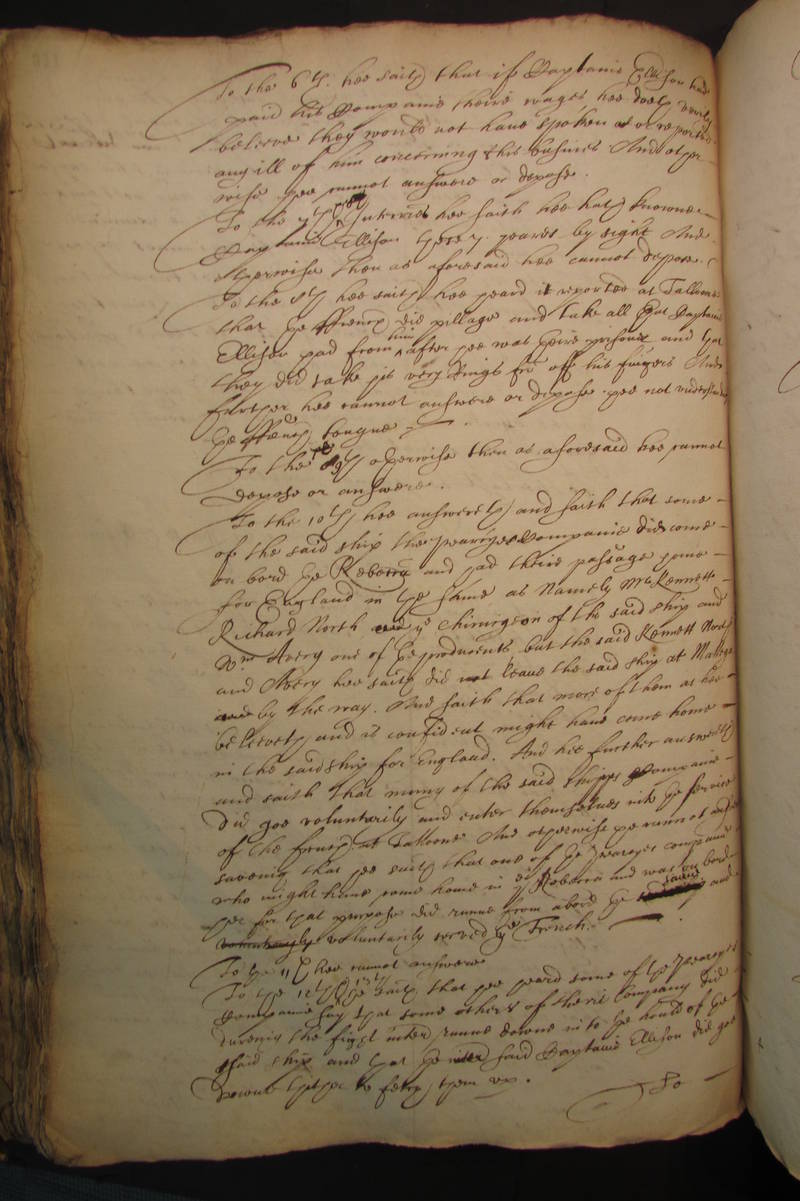 To the 6th. hee saith that if Captaine Ellison had
paid his Companie theire wages hee doeth verily
beleeve they would not have spoken or reported
any ill of him concerning this busines And other-
wise hee cannot answere or depose.
To the 7th Interrie hee saith hee hath knowne
Captaine Ellison these 7. yeares by sight And
otherwise then as aforesaid hee cannot depose.
To the 8th hee saith hee heard it reported at Talloone
that the ffrench did pillage and take all that Captaine
Ellison had from him after hee was theire prisoner and that
they did take his very rings off his fingers And
further hee cannot answere or depose hee not understanding
the ffrench tongue
To the 9th otherwise then as aforesaid hee cannot
depose or answere.
To the 10th hee answereth and saith that some
of the said ship the Companie did come
on bord the Rebecca and had theire passage home
for England in the same as Namely Mr Kennett
Richard North ye Chirurgeon of the said ship and
Wm Avery one of the producents but the said Kennett North
and Avery hee saith did not leave the said ship at Mallaga
by the way. And saith that more of them as hee
beleeveth and is confident might have come home
in the said ship for England. And hee further answereth
and saith that many of the said shipps Companie
did goe voluntarily and enter themselves into the service
of the french at Talloone And otherwise hee cannot answere
saveing that hee saith that one of the companie
who might have come home in ye Rebecca and was on bord
her for that purpose did runne from abord the same and
voluntarily served ye French.
To the 11th hee cannot answere
To the 12th & 13th hee saith that hee heard some of the
Companie say that some others of theire Company did
dureing the fight runne downe into the hould of the
said ship and that the said Captaine Ellison did goe
downe thither to fetch them up.
To